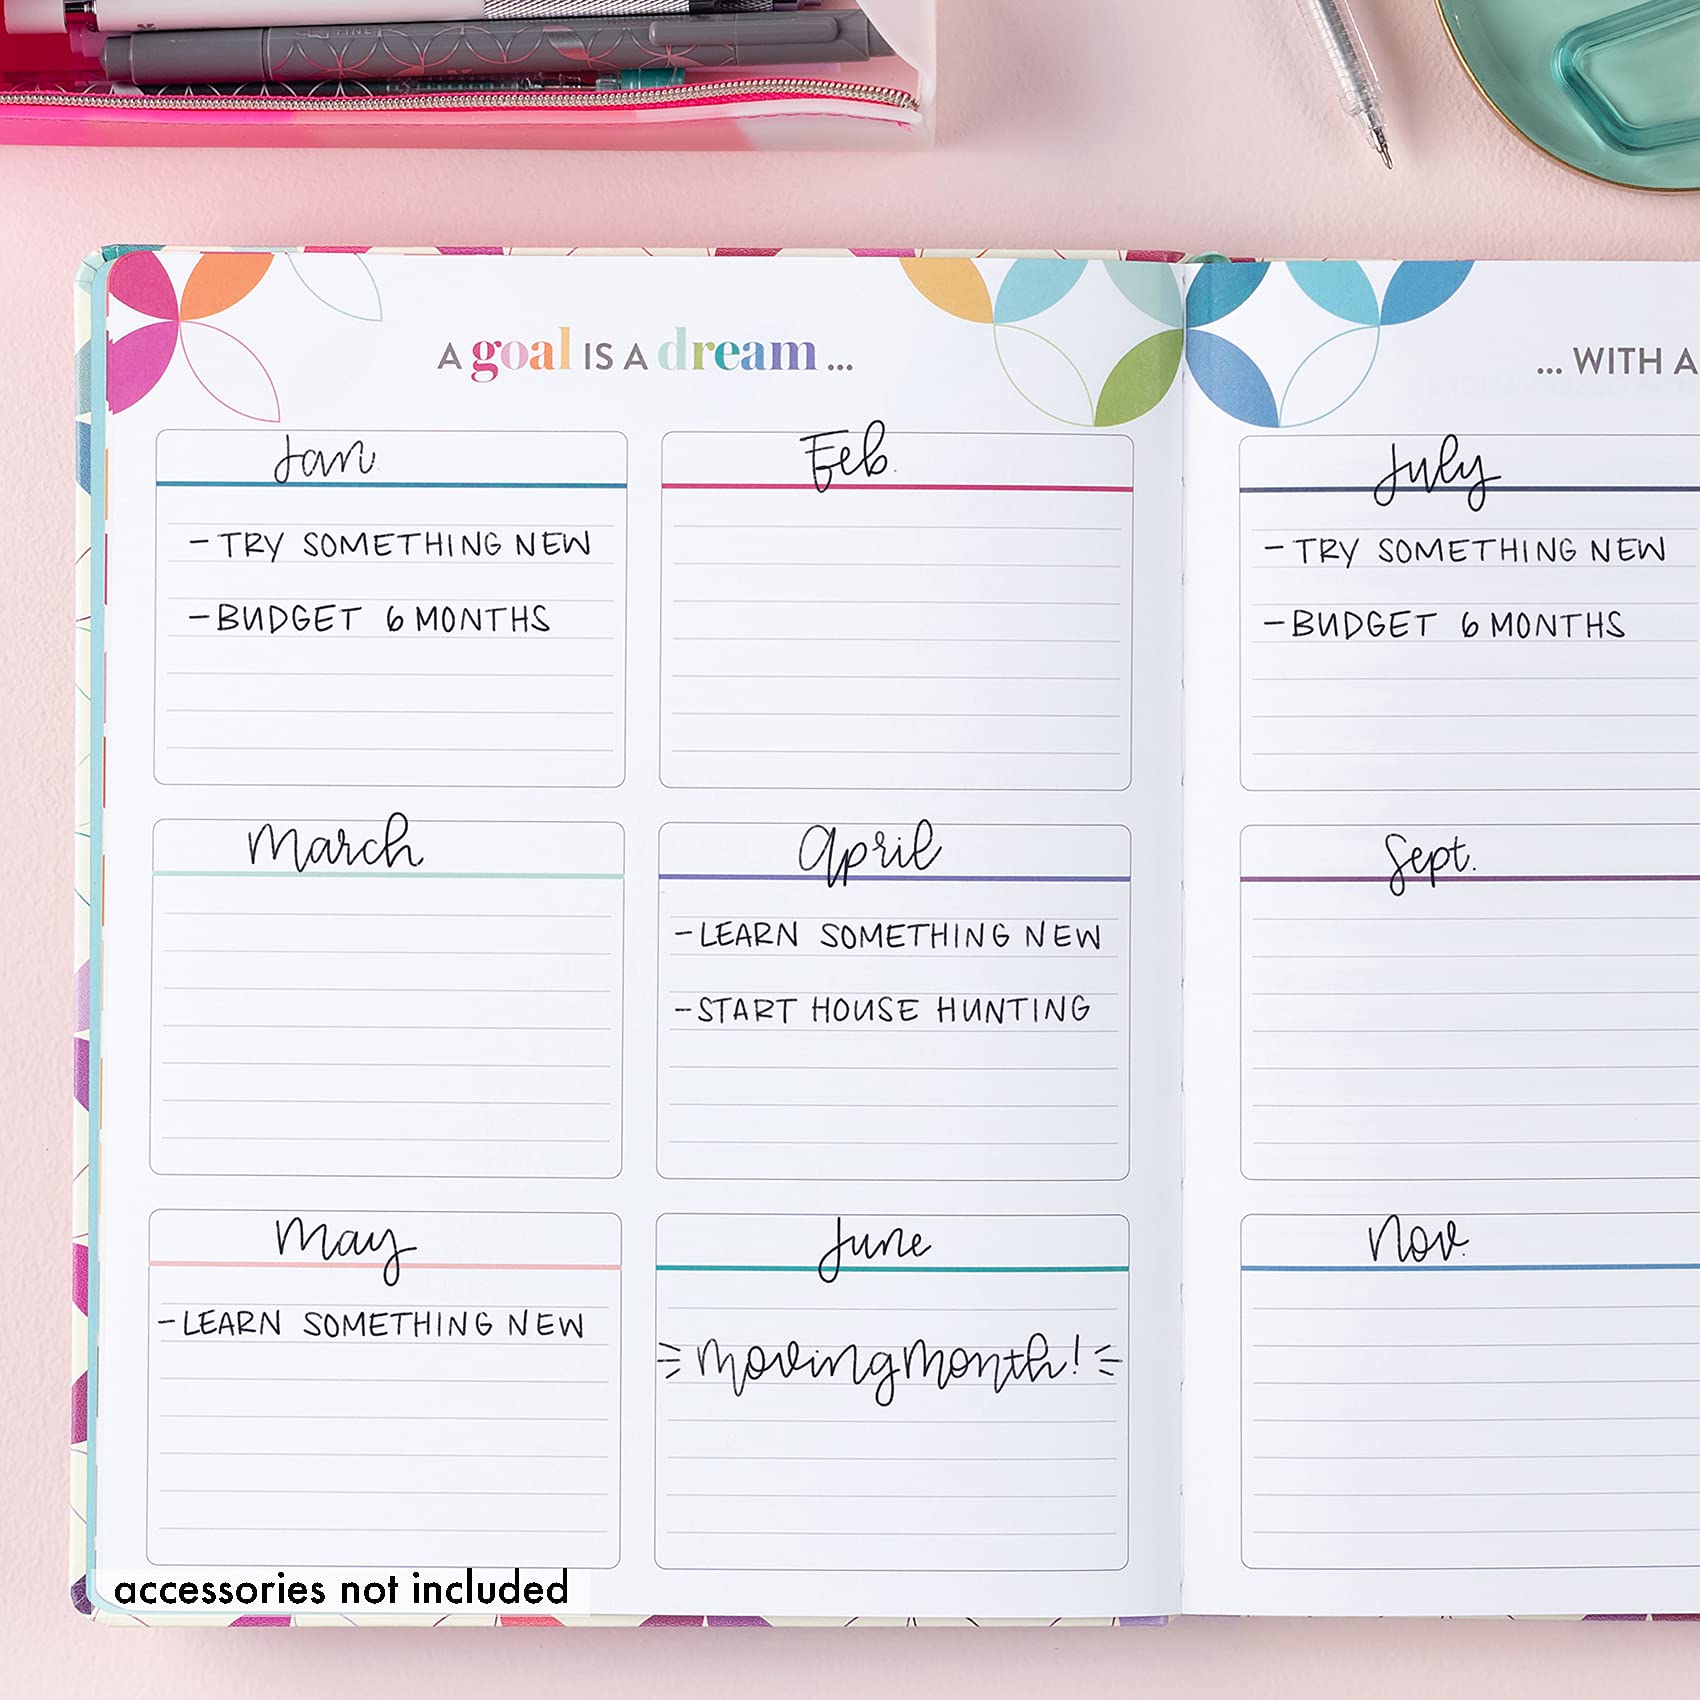 FINE
A goal IS A dream ...
... WITH A
Jan.
- TRY SOMETHING NEW
- BUDGET 6 MONTHS
Feb.
March
April
- LEARN SOMETHING NEW
- START HOUSE HUNTING
May
- LEARN SOMETHING NEW
June
moving month!
July
- TRY SOMETHING NEW
- BUDGET 6 MONTHS
Sept.
Nov.
accessories not included